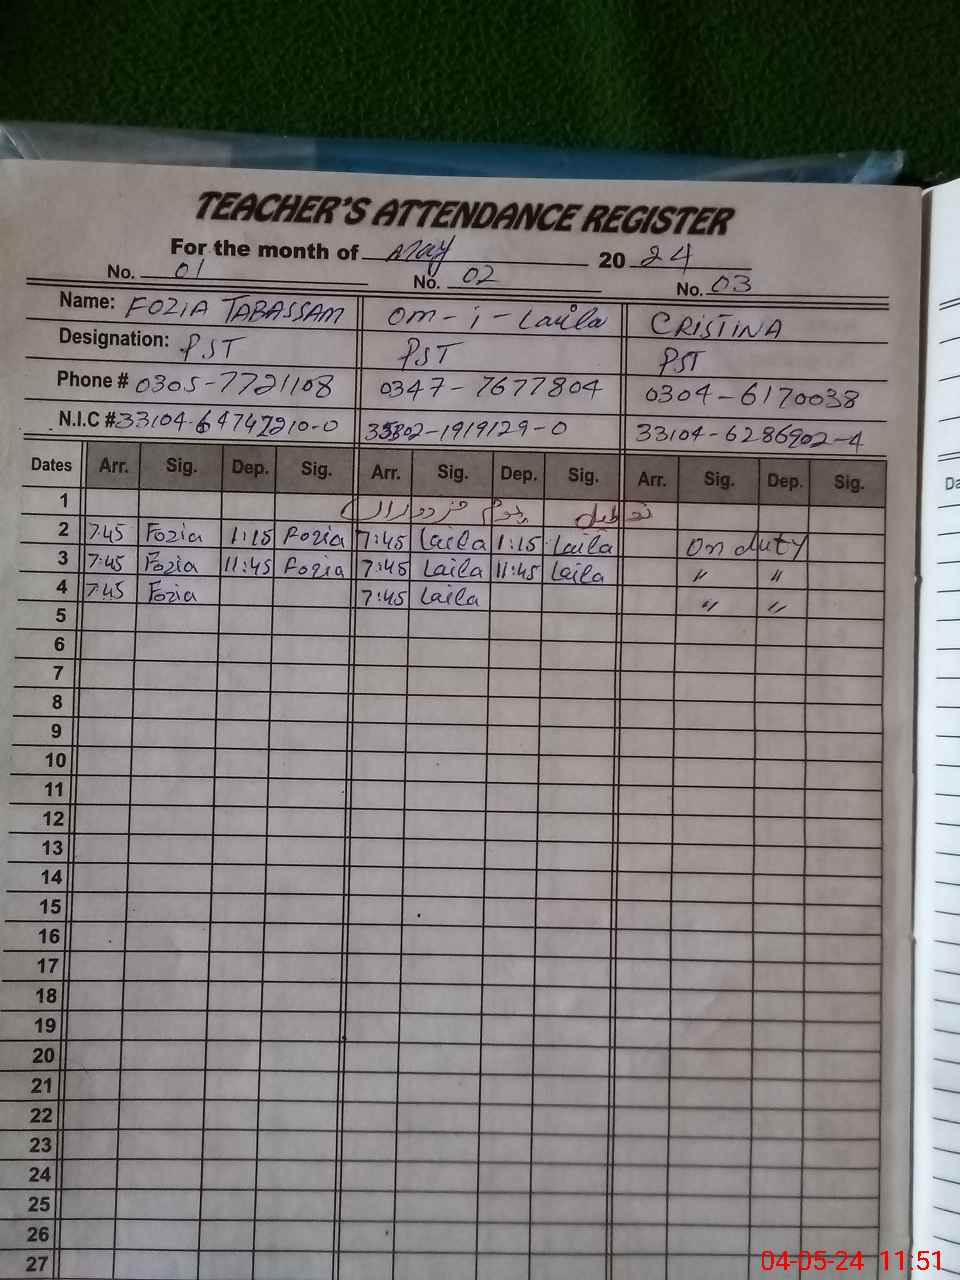 TEACHER'S ATTENDANCE REGISTER
For the month of May 2024
No. 01 No. 02 No. 03
Name: FOZIA TABASSAM Om-i-Laila CRISTINA
Designation: PST PST PST
Phone # 0305-7721108 0347-7677804 0304-6170038
N.I.C # 33104-64742210-0 35302-1919129-0 33104-6286902-4
Dates Arr. Sig. Dep. Sig. Arr. Sig. Dep. Sig. Arr. Sig. Dep. Sig.
1 تعطیل یوم مزدوراں
2 7:45 Fozia 1:15 Fozia 7:45 Laila 1:15 Laila On duty
3 7:45 Fozia 11:45 Fozia 7:45 Laila 11:45 Laila " "
4 7:45 Fozia 7:45 Laila " "
5
6
7
8
9
10
11
12
13
14
15
16
17
18
19
20
21
22
23
24
25
26
27
Da
04-05-24 11:51